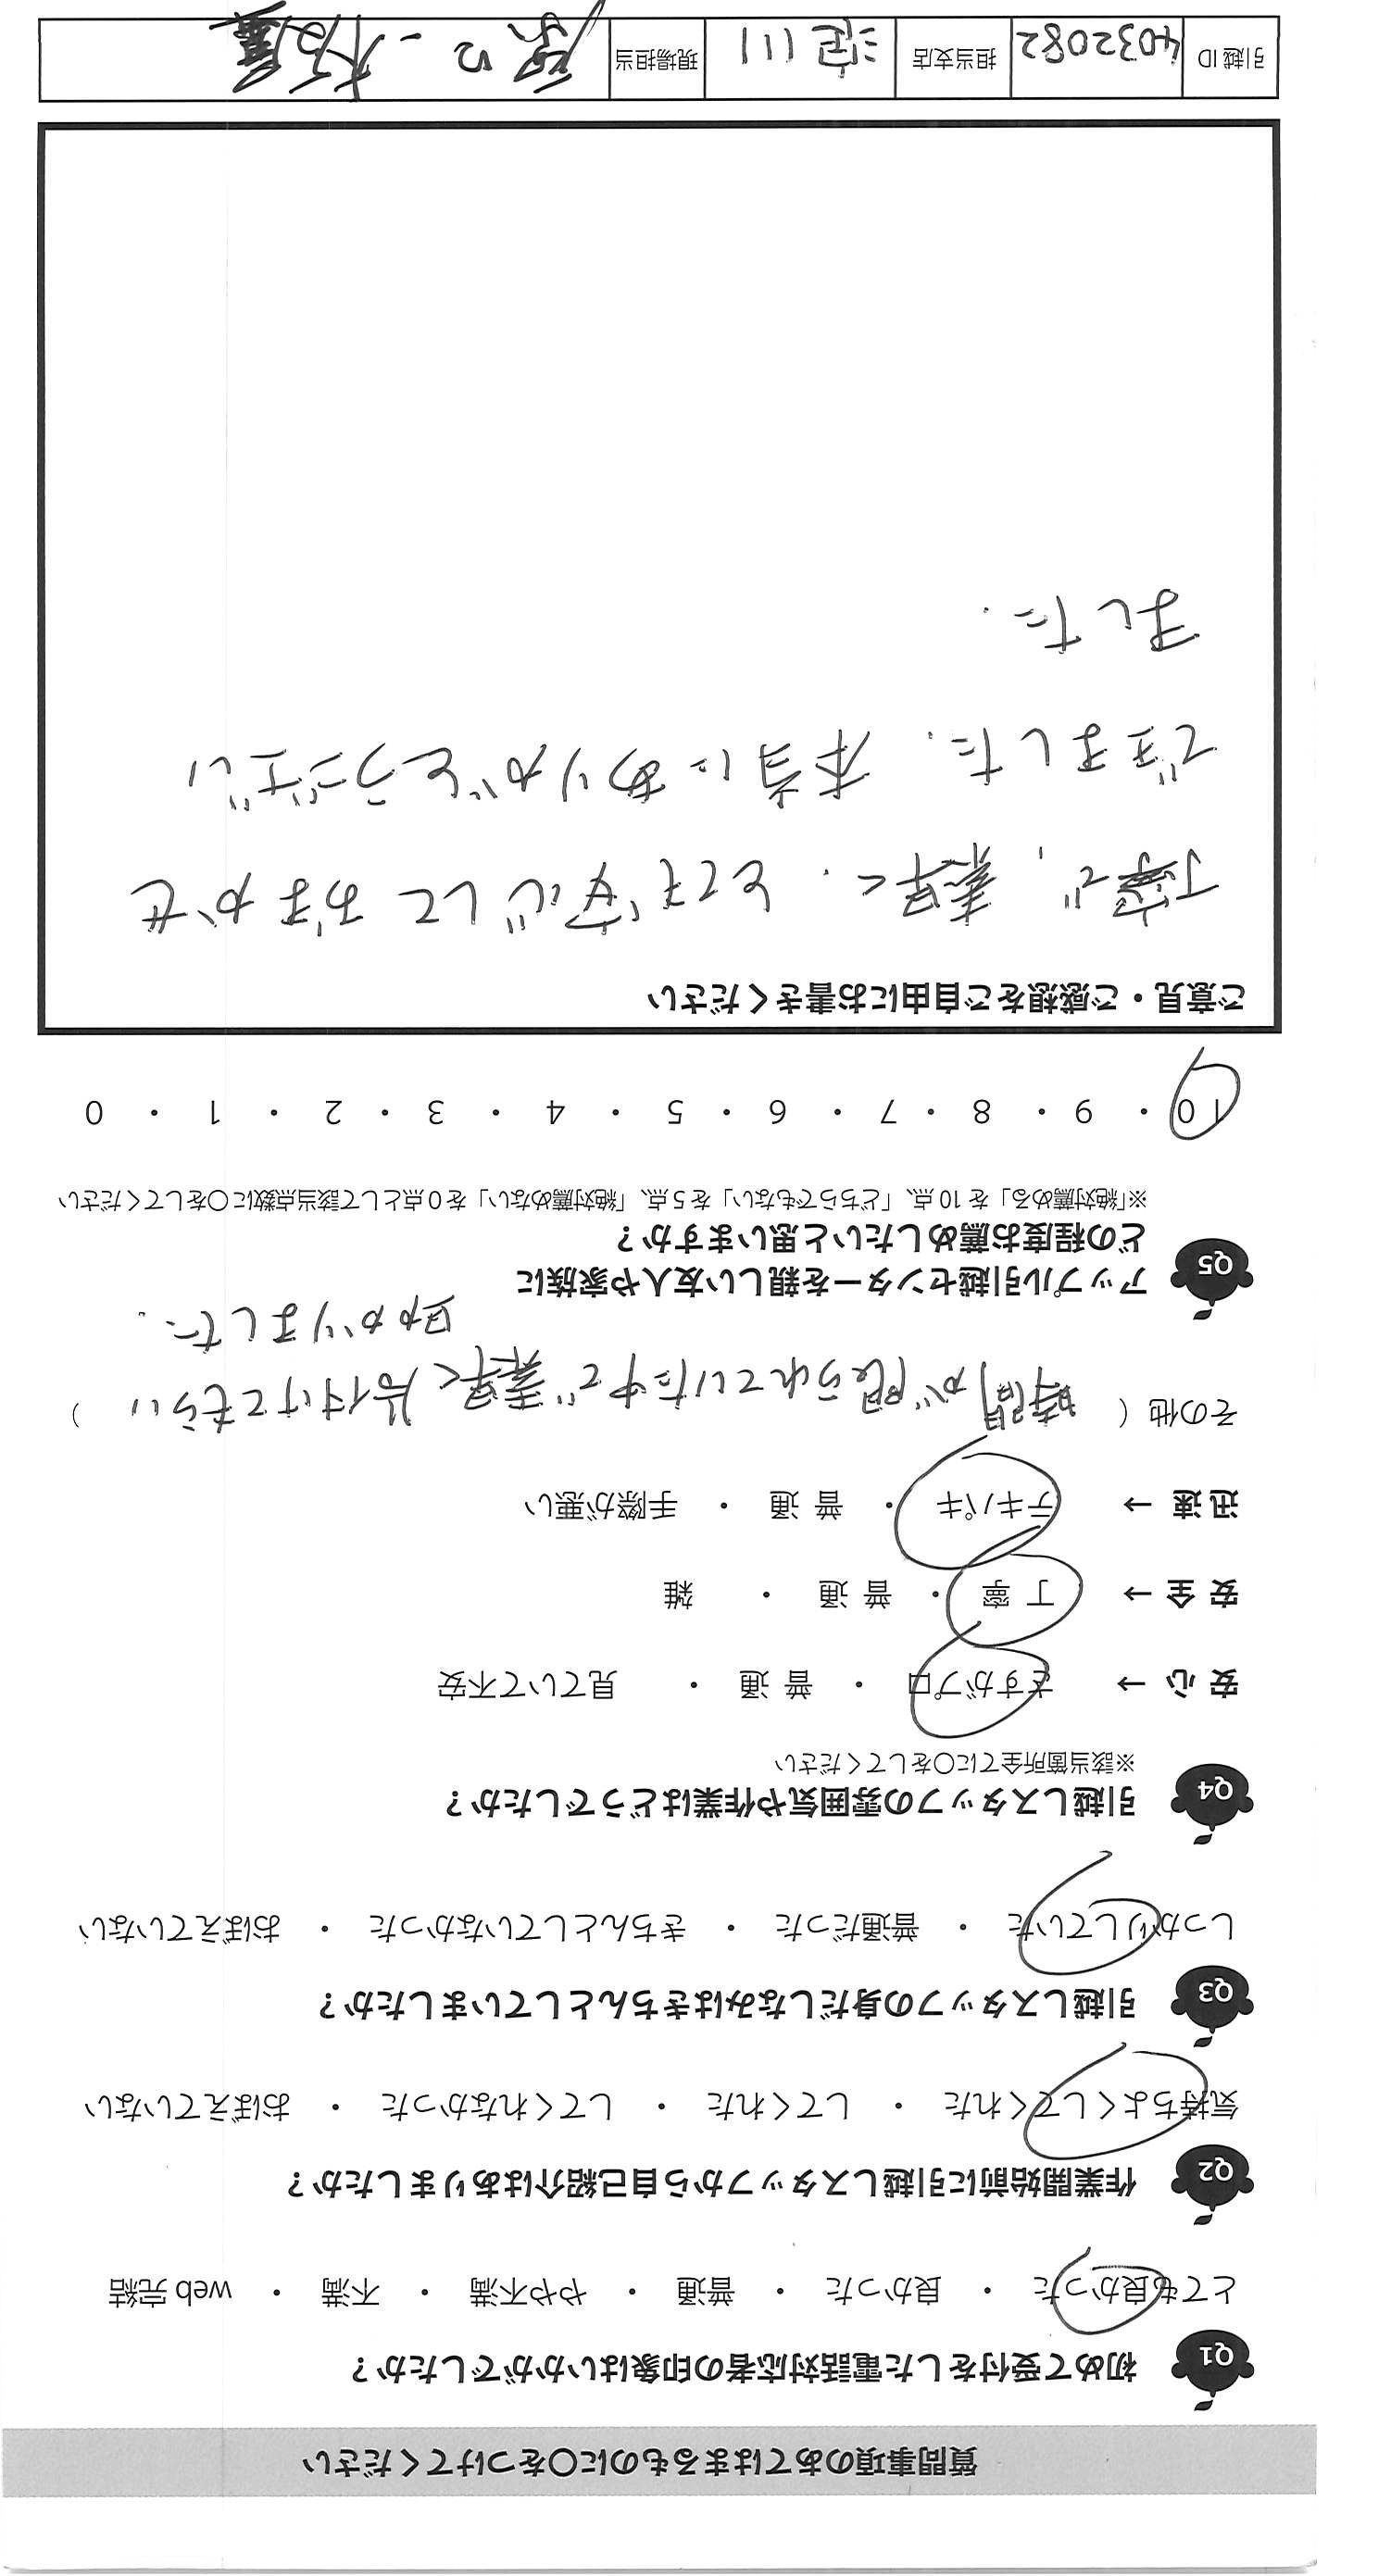 質問事項のあてはまるものに〇をつけてください
Q1 初めて受付をした電話対応者の印象はいかがでしたか？
とても良かった ・ 良かった ・ 普通 ・ やや不満 ・ 不満 ・ web 完結
Q2 作業開始前に引越しスタッフから自己紹介はありましたか？
気持ちよくしてくれた ・ してくれた ・ してくれなかった ・ おぼえていない
Q3 引越しスタッフの身だしなみはきちんとしていましたか？
しっかりしていた ・ 普通だった ・ きちんとしていなかった ・ おぼえていない
Q4 引越しスタッフの雰囲気や作業はどうでしたか？
※該当箇所全てに〇をしてください
安 心 → さすがプロ ・ 普 通 ・ 見ていて不安
安 全 → 丁 寧 ・ 普 通 ・ 雑
迅 速 → テキパキ ・ 普 通 ・ 手際が悪い
その他（ 時間が限られていた中で素早く片付けてもらい ）
助かりました.
Q5 アップル引越センターを親しい友人や家族に
どの程度お薦めしたいと思いますか？
※「絶対薦める」を 10 点、「どちらでもない」を 5 点、「絶対薦めない」を 0 点として該当点数に〇をしてください
10 ・ 9 ・ 8 ・ 7 ・ 6 ・ 5 ・ 4 ・ 3 ・ 2 ・ 1 ・ 0
ご意見・ご感想をご自由にお書きください
丁寧で、素早く、とても安心しておまかせ
できました. 本当にありがとうござい
ました.
引越 ID 4032082 担当支店 淀川 現場担当